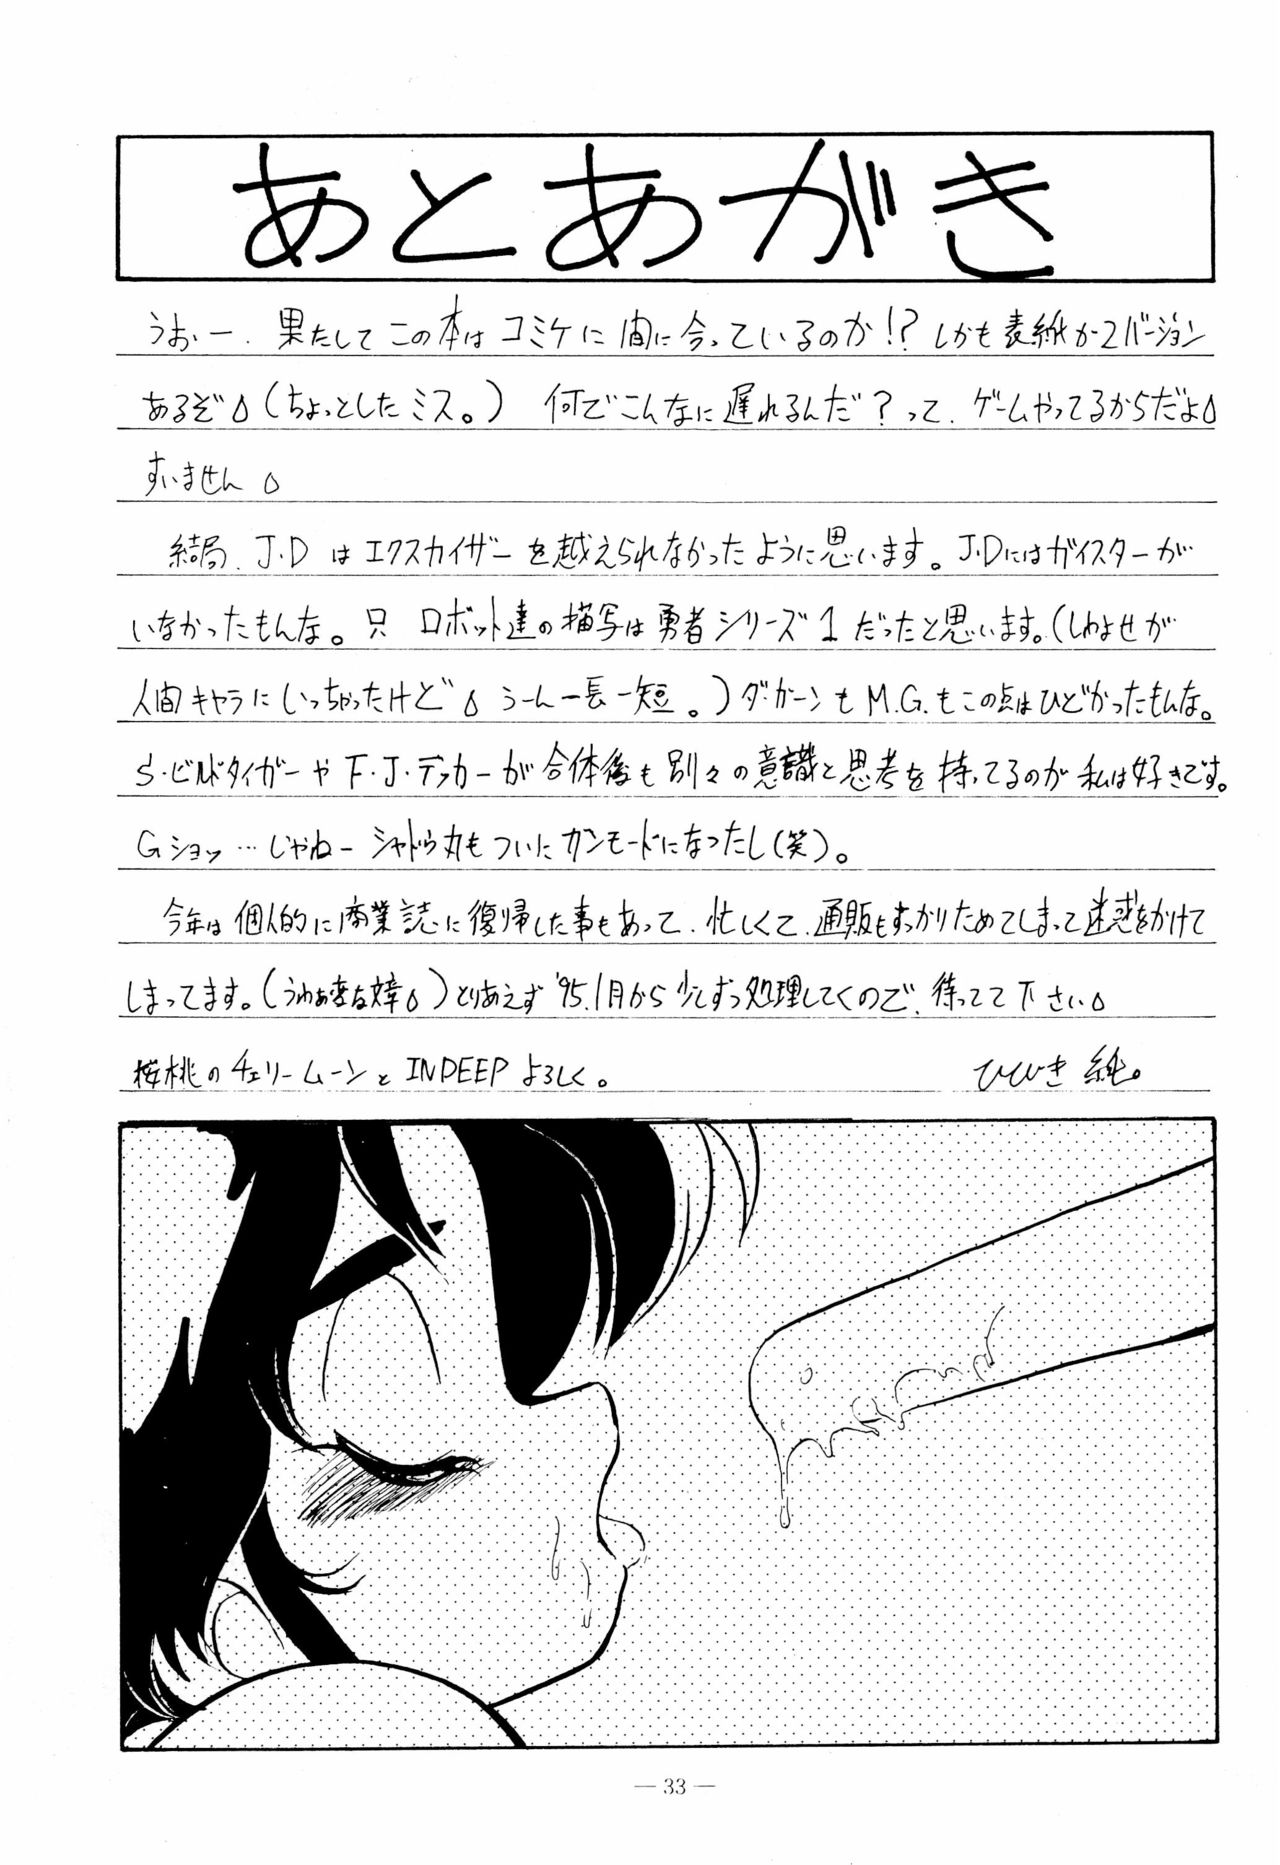 あとあがき
うおー、果たしてこの本はコミケに間に合っているのか!? しかも表紙が2バージョン
あるぞ(ちょっとしたミス。) 何でこんなに遅れるんだ?って、ゲームやってるからだよ
すいません
結局、J・Dはエクスカイザーを越えられなかったように思います。J・Dにはガイスターが
いなかったもんな。只 ロボット達の描写は勇者シリーズ1だったと思います。(しわよせが
人間キャラにいっちゃったけど うーん一長一短。)ダ・ガーンもM.G.もこの点はひどかったもんな。
S・ビルドタイガーやF・J・デッカーが合体後も別々の意識と思考を持ってるのが私は好きです。
Gショッ…じゃねーシャドウ丸もついにガンモードになったし(笑)。
今年は個人的に商業誌に復帰した事もあって、忙しくて、通販もすっかりためてしまって迷惑をかけて
しまってます。(うわぁ変な文章)とりあえず'95.1月から少しずつ処理してくので、待ってて下さい
桜桃のチェリームーンとINDEEPよろしく。
ひびき純。
— 33 —